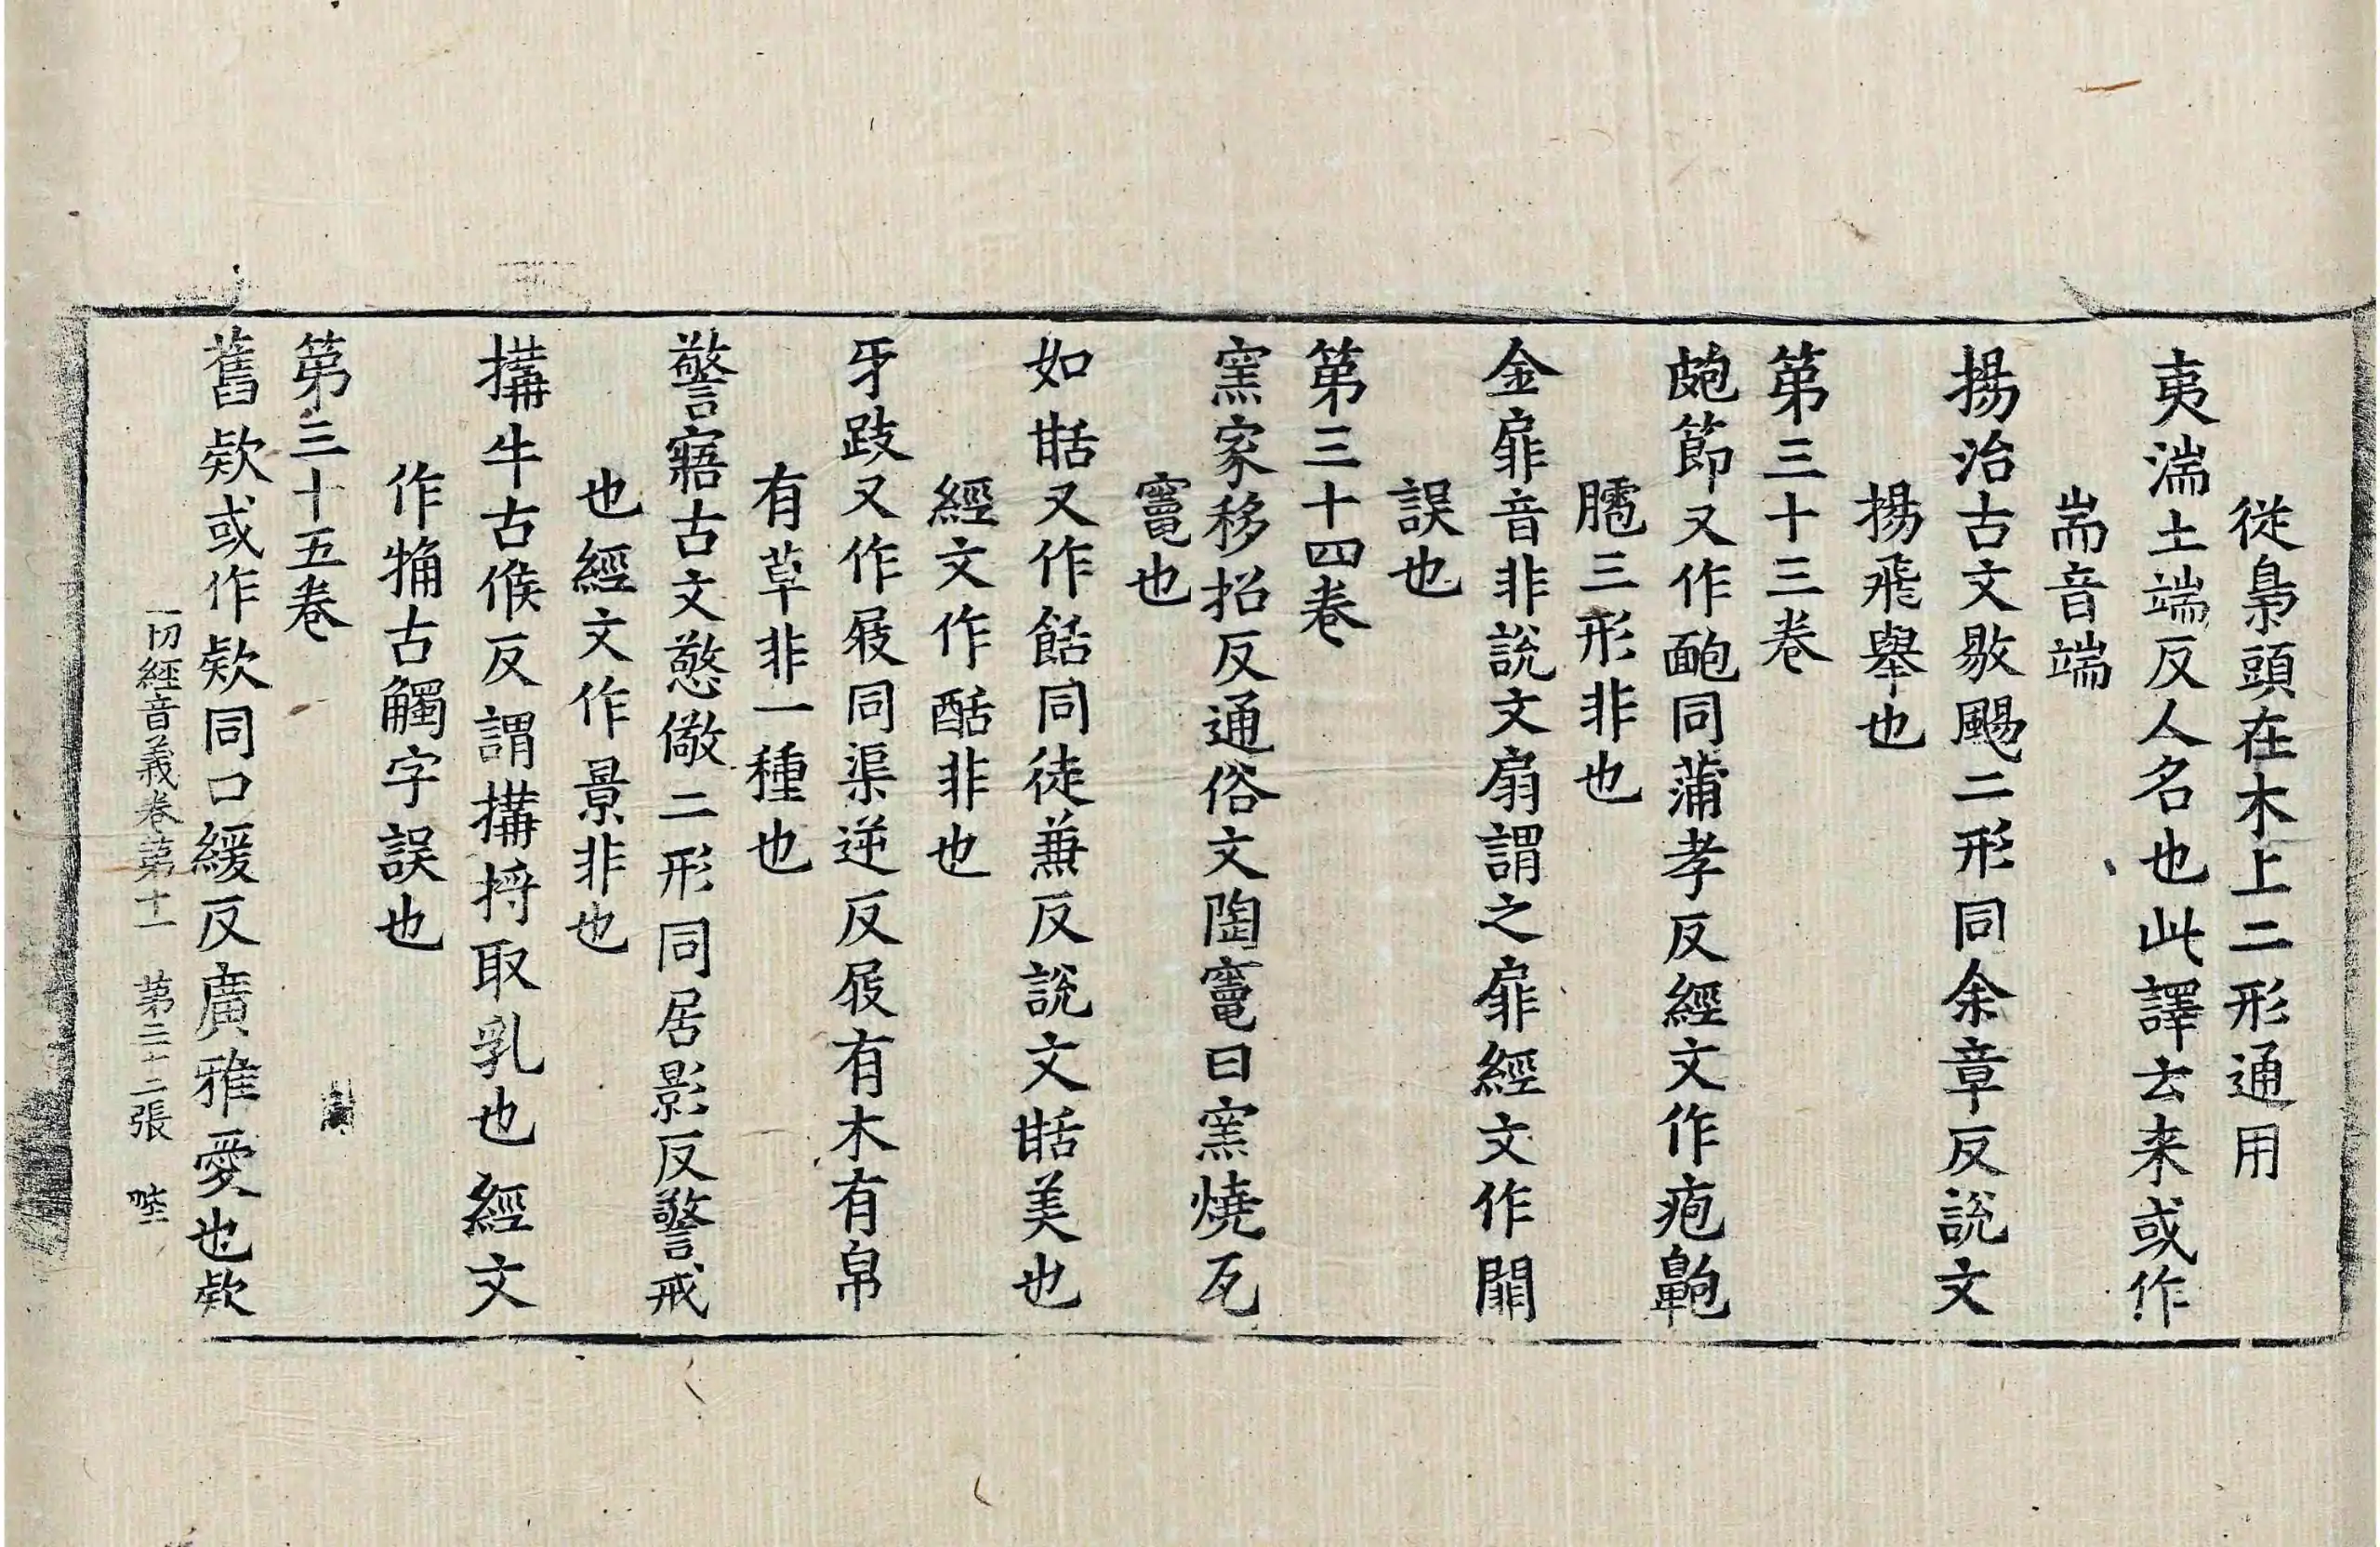 從梟頭在木上二形通用
夷湍土端反人名也此譯去来或作
耑音端
揚治古文敭颺二形同余章反說文
揚飛舉也
第三十三卷
皰節又作䩝同蒲孝反經文作疱鼥
三形非也
金扉音非說文扇謂之扉經文作闀
誤也
第三十四卷
窯家移招反通俗文陶竈曰窯燒瓦
竈也
如甛又作餂同徒兼反說文甛美也
經文作酟非也
牙跂又作屐同渠逆反屐有木有帛
有草非一種也
警寤古文憼儆二形同居影反警戒
也經文作景非也
搆牛古候反謂搆捋取乳也經文
作觕古觸字誤也
第三十五卷
舊欵或作款同口緩反廣雅愛也欵
一切經音義卷第十一 第二十二張